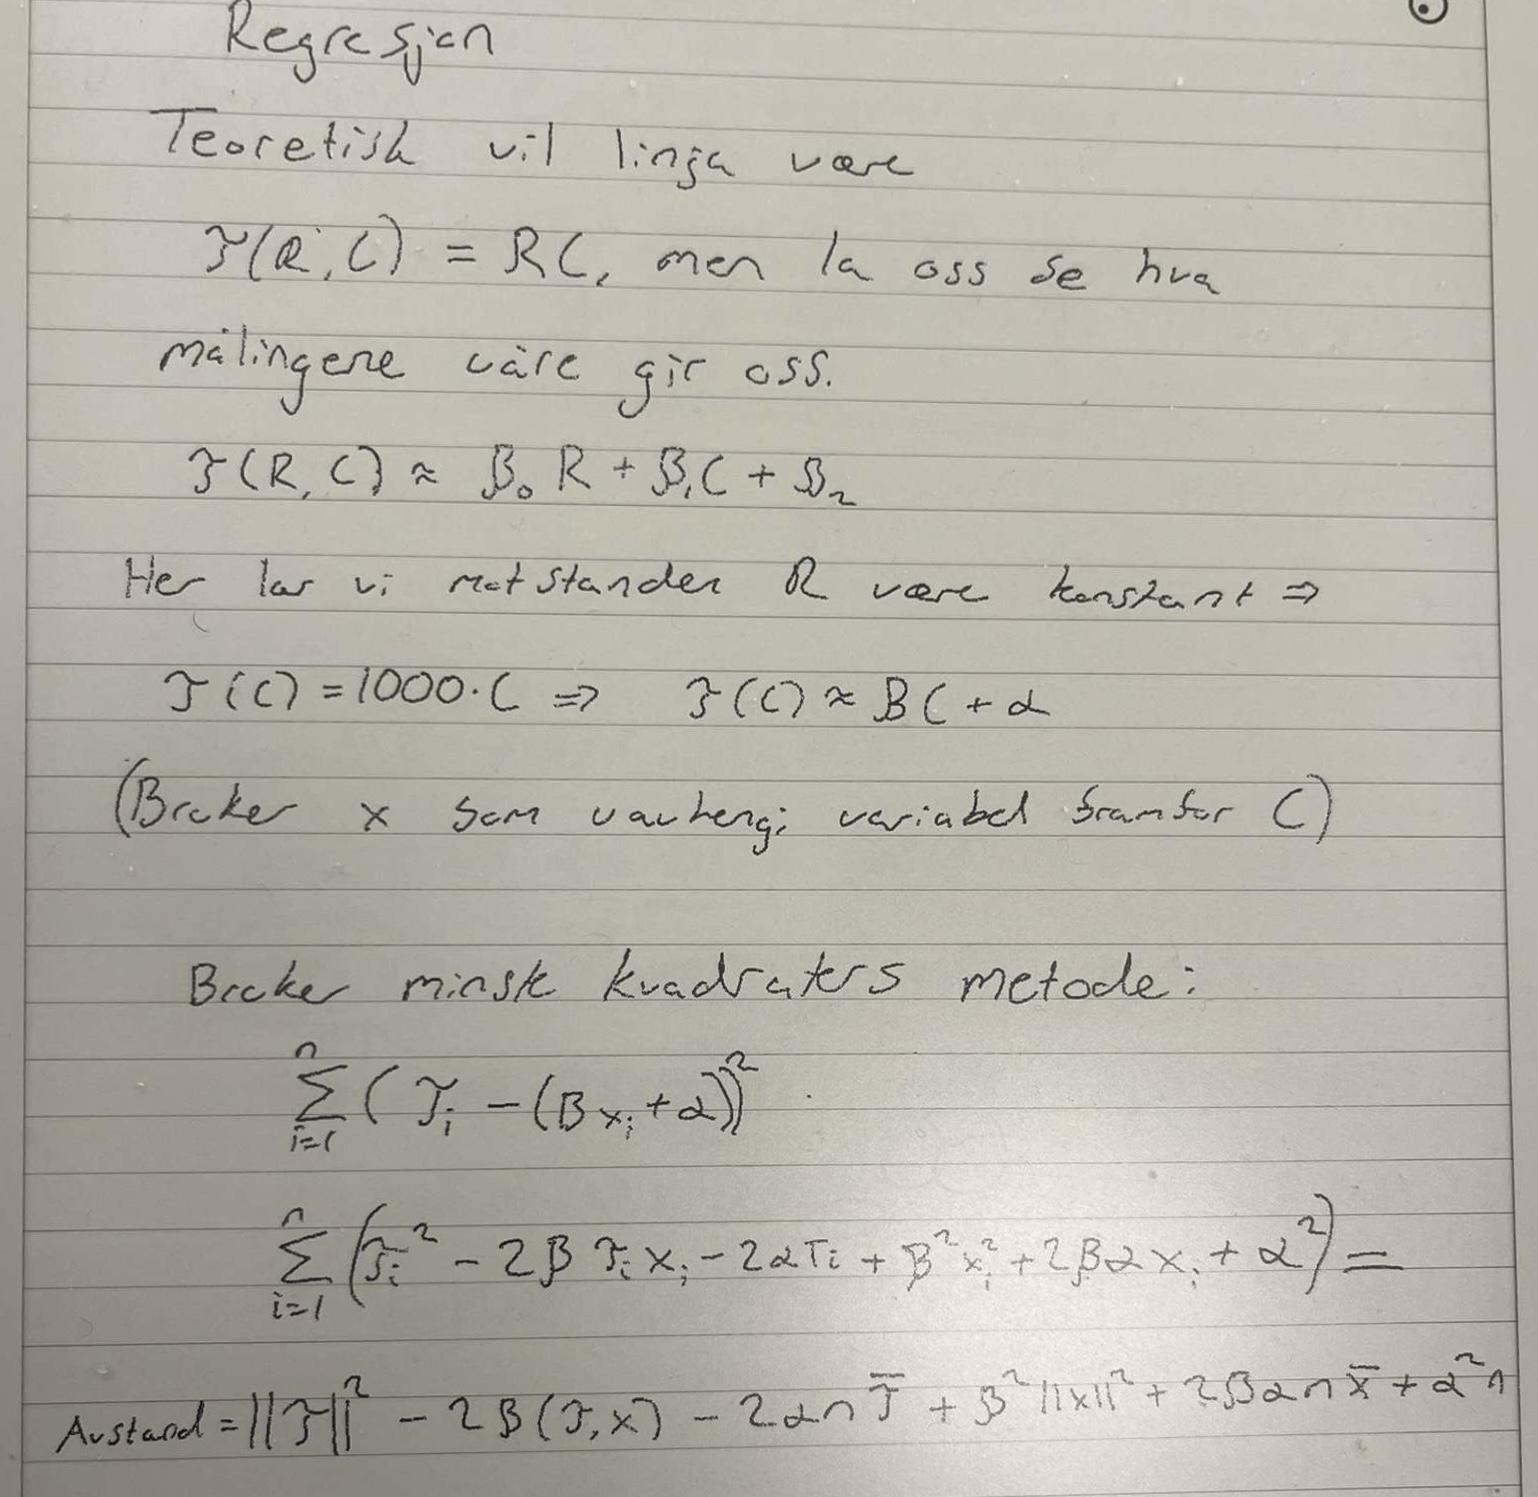 Regresjon
Teoretisk vil linja være
τ(R, C) = RC, men la oss se hva
målingene våre gir oss.
τ(R, C) ≈ β₀ R + β₁C + β₂
Her lar vi motstanden R være konstant ⇒
τ(C) = 1000·C ⇒ τ(C) ≈ βC + α
(Bruker x som uavhengi variabel framfor C)
Bruker minste kvadraters metode:
∑ᵢ₌₁ⁿ (τᵢ - (βxᵢ + α))²
∑ᵢ₌₁ⁿ (τᵢ² - 2βτᵢxᵢ - 2ατᵢ + β²xᵢ² + 2βαxᵢ + α²) =
Avstand = ||τ||² - 2β(τ,x) - 2αnτ̅ + β²||x||² + 2βαnx̅ + α²n